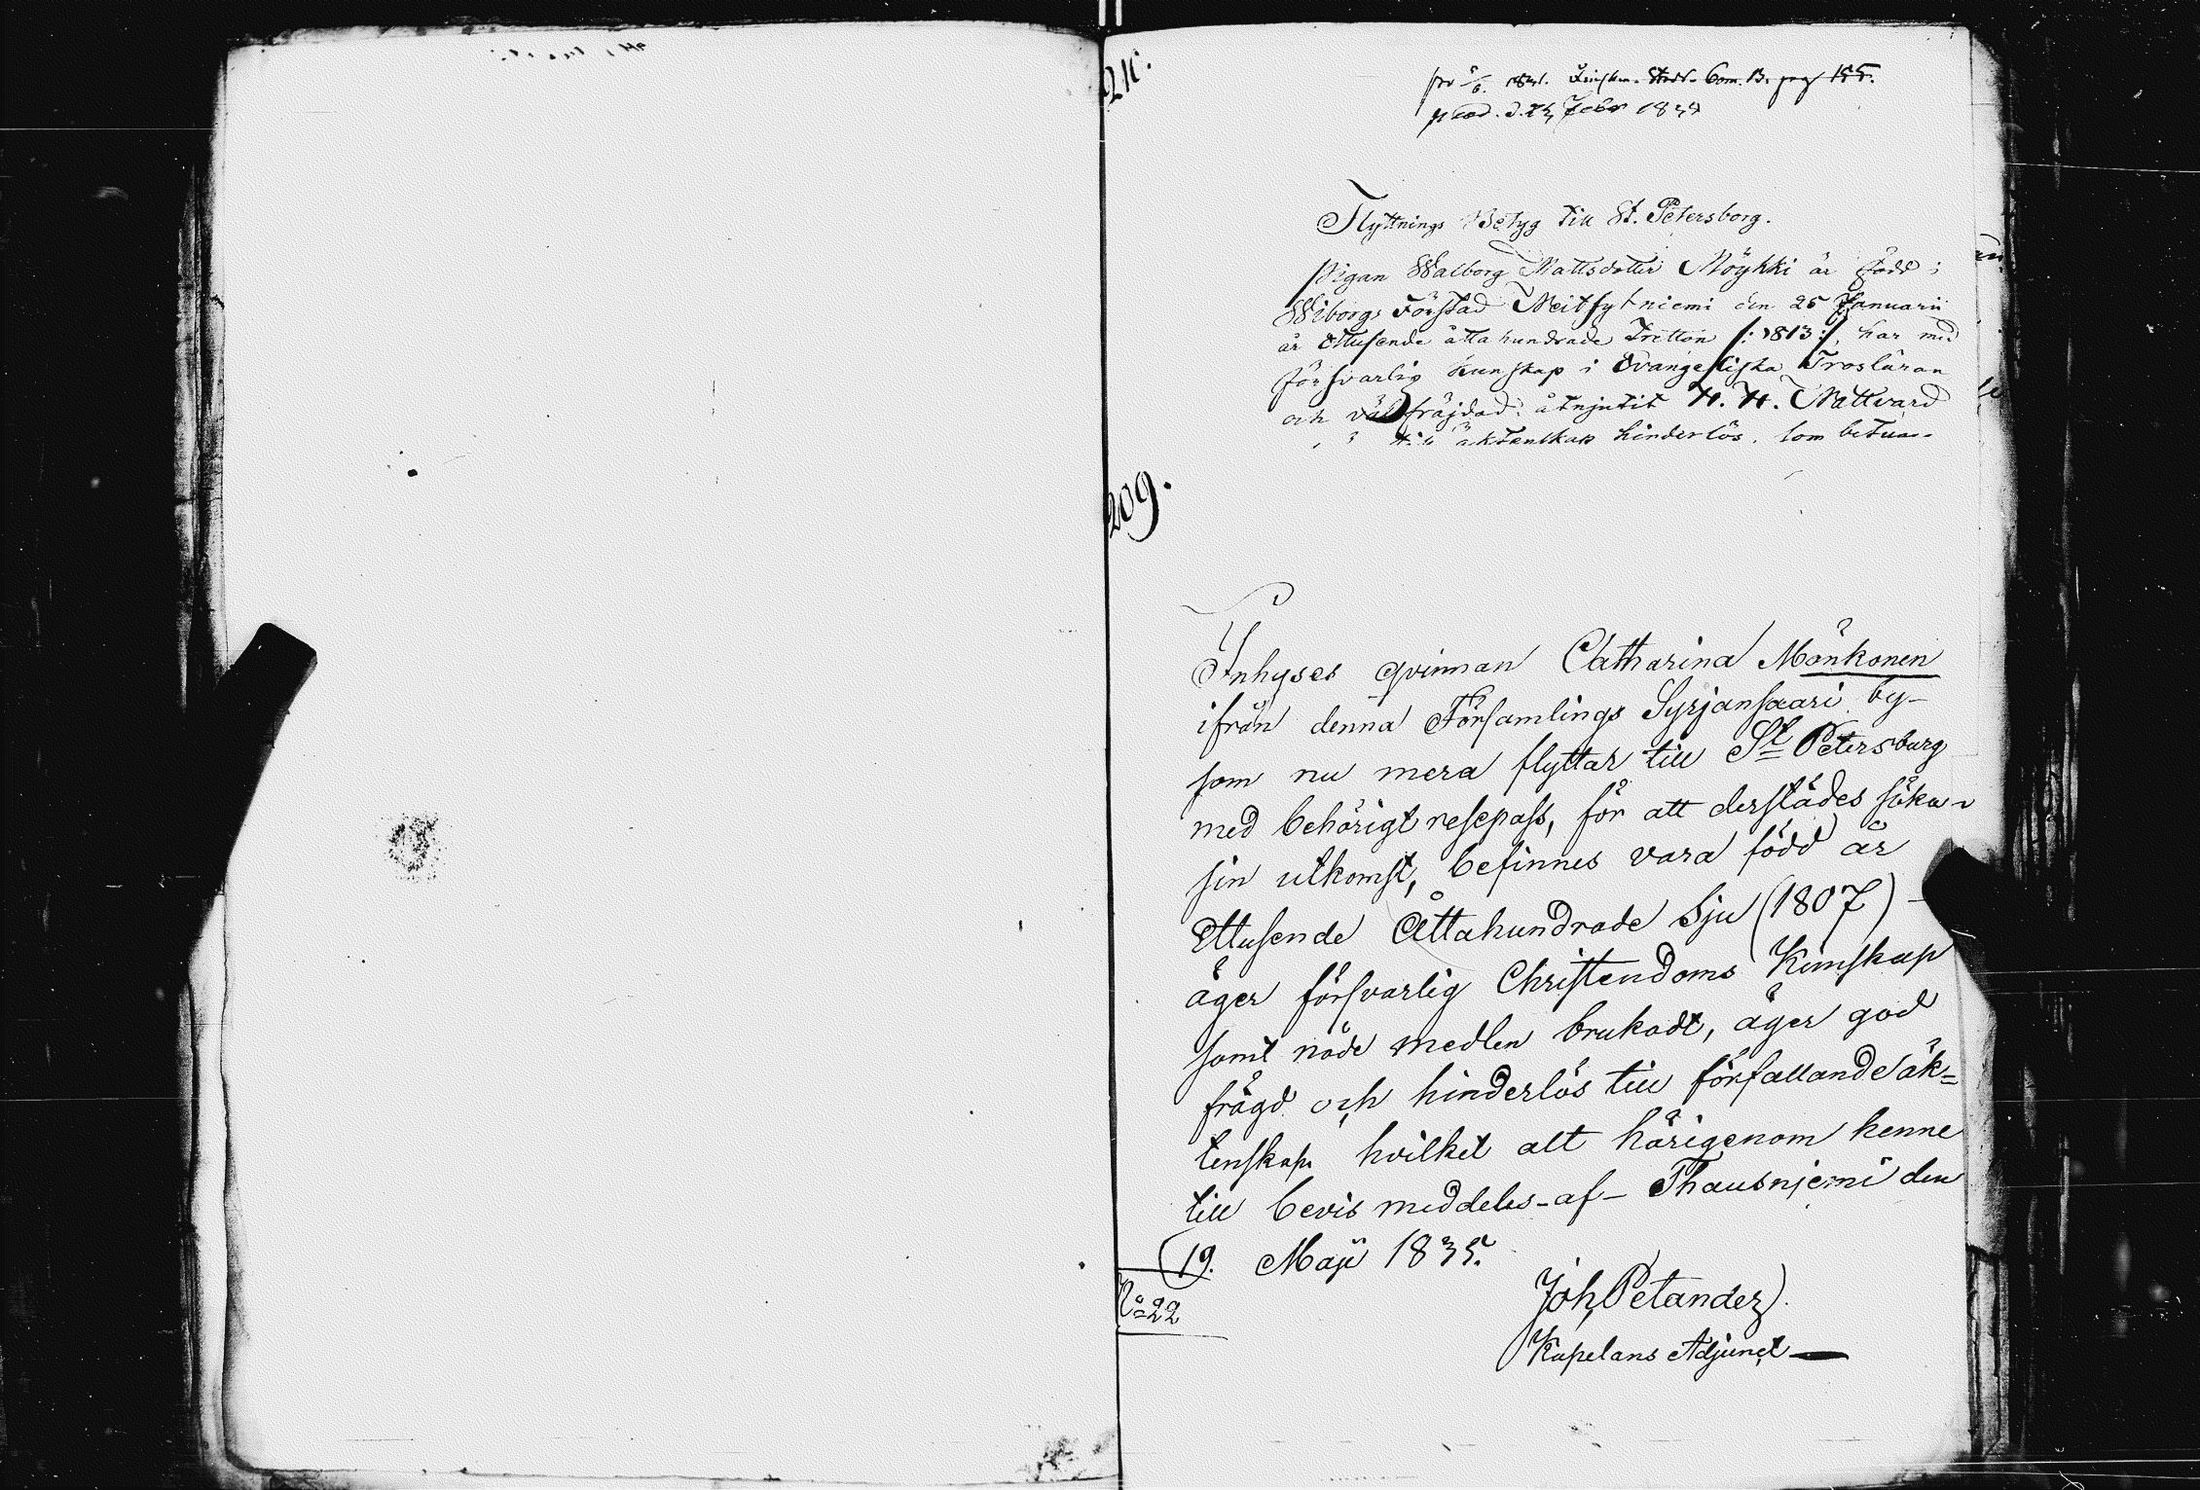 21[?].
1831. Com. B. pag 155.
Flyttnings Betyg till St. Petersborg.
Pigan Walborg Mattsdotter Möykki är född i
Wiborgs Förstad Neitsytniemi den 25 Januarii
år Ettusende åtta hundrade Tretton /:1813:/, har med
försvarlig kunskap i Evangeliska Trosläran
och väl fräjdad åtnjutit H. H. Nattvard
till äktenskap hinderlös. som
209.
Inhyses qvinnan Catharina Mönkönen
ifrån denna Församlings Syrjänsaari by-
som nu mera flyttar till St Petersburg
med behörigt respass, för att derstädes söka
sin utkomst, befinnes vara född år
Ettusende Åttahundrade Sju (1807) -
äger försvarlig Christendoms Kunskap
samt nåde medlen brukadt, äger god
frägd och hinderlös till förfallande äk=
tenskap hvilket alt härigenom henne
till bevis meddeles - af - Thausniemi den
19. Maji 1835.
No 22
Joh Petander.
Kapelans Adjunct